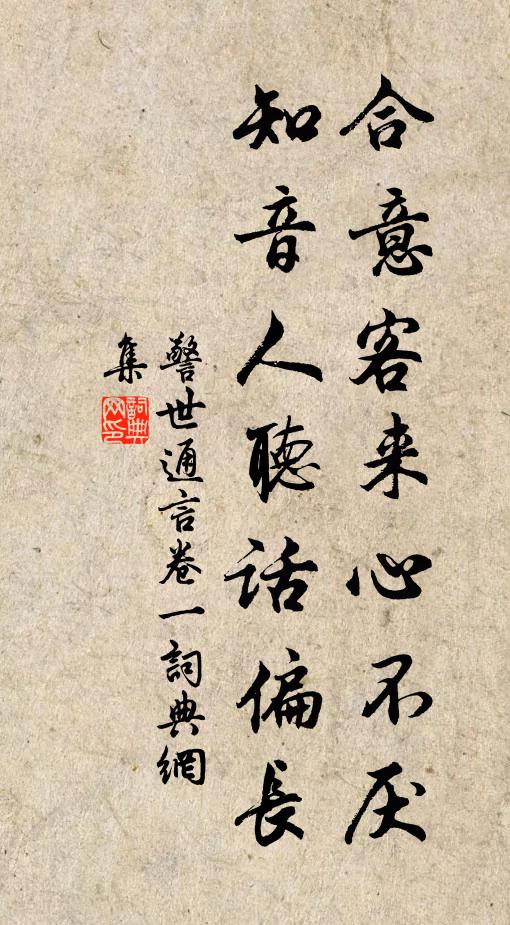 合意客来心不厌
知音人聽话偏長
警世通言卷一詞典網
集
詞典
网印